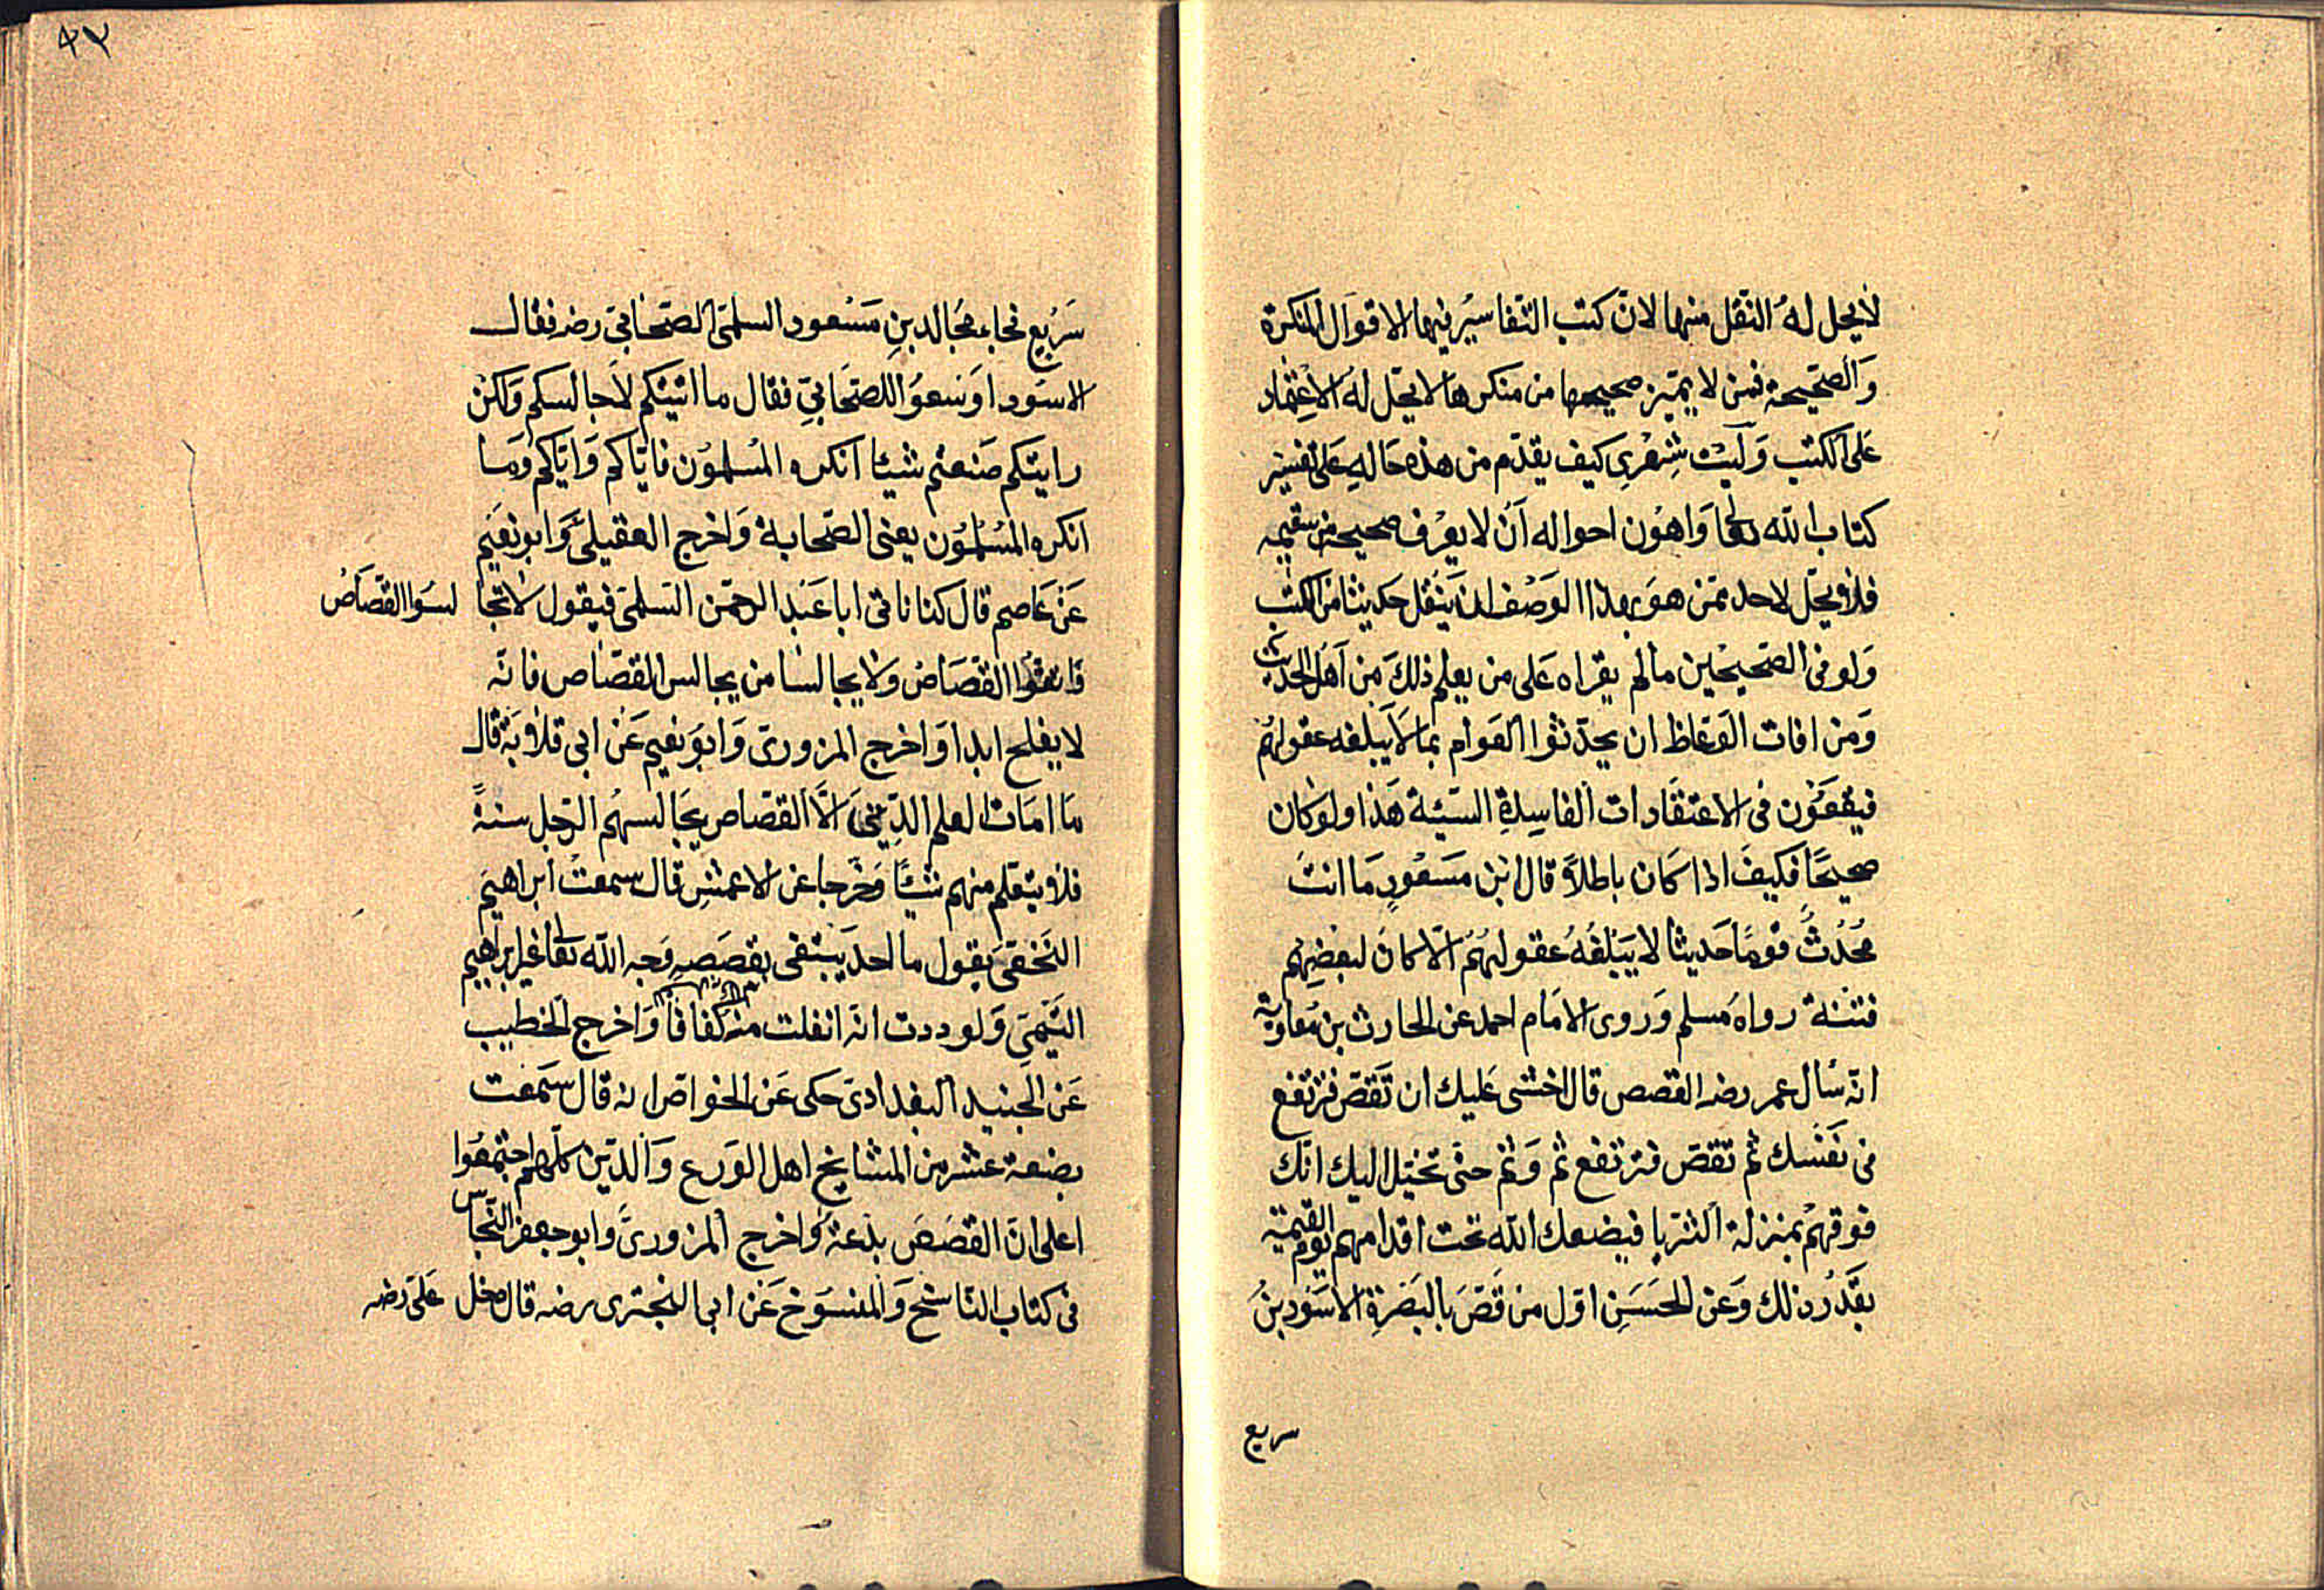 لايحل له النقل منها لان كتب التفاسير فيها الاقوال المنكرة
والصحيحة فمن لا يميز صحيحها من منكرها لا يحل له الاعتماد
على الكتب وليت شعري كيف يقدم من هذه حاله على تفسير
كتاب الله تعا واهون احواله ان لا يعرف صحيحه من سقيمه
فلا يحل لاحد ممن هو بهذا الوصف ان ينقل حديثا من الكتب
ولو في الصحيحين مالم يقراه على من يعلم ذلك من اهل الحديث
ومن افات الوعاظ ان يحدثوا العوام بما لا يبلغه عقولهم
فيقعون في الاعتقادات الفاسدة السيئة هذا ولو كان
صحيحا فكيف اذا كان باطلا قال ابن مسعود ما انت
محدث قوما حديثا لا يبلغه عقولهم الا كان لبعضهم
فتنة رواه مسلم وروى الامام احمد عن الحارث بن معاوية
انه سال عمر رضه القصص قال اخشى عليك ان تقص فترتفع
في نفسك ثم تقص فترتفع ثم وثم حتى تخيل اليك انك
فوقهم بمنزلة الثريا فيضعك الله تحت اقدامهم يوم القيمة
بقدر ذلك وعن الحسن اول من قص بالبصرة الاسود بن
سريع
٤٢
سريع فجاء مجالد بن مسعود السلمي الصحابي رضه فقال
الاسود اوسعوا للصحابي فقال ما اتيتكم لاجالسكم ولكن
رايتكم صنعتم شيئا انكره المسلمون فاياكم واياكم وما
انكره المسلمون يعني الصحابة واخرج العقيلي وابو نعيم
عن عاصم قال كنا ناتي ابا عبد الرحمن السلمي فيقول لا تجا لسوا القصاص
واتقوا القصاص ولا يجالسنا من يجالس القصاص فانه
لا يفلح ابدا واخرج المروزي وابو نعيم عن ابي قلابة قال
ما امات العلم الا القصاص يجالسهم الرجل سنة
فلا يتعلم منهم شيئا وخرجا عن الاعمش قال سمعت ابراهيم
النخعي يقول ما احد يبتغي بقصصه وجه الله تعا غير ابراهيم
التيمي ولوددت انه انفلت منه كفافا واخرج الخطيب
عن الجنيد البغدادي حكى عن الخواص انه قال سمعت
بضعة عشر من المشايخ اهل الورع والدين كلهم اجتمعوا
على ان القصص بدعة واخرج المروزي وابو جعفر النحاس
في كتاب الناسخ والمنسوخ عن ابي البختري رضه قال دخل على رضه